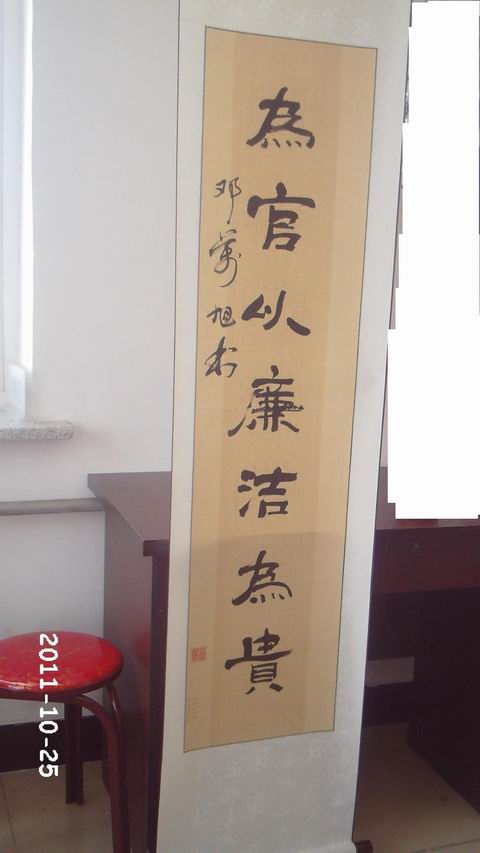 為官以廉洁為貴
邓萬旭书
2011-10-25